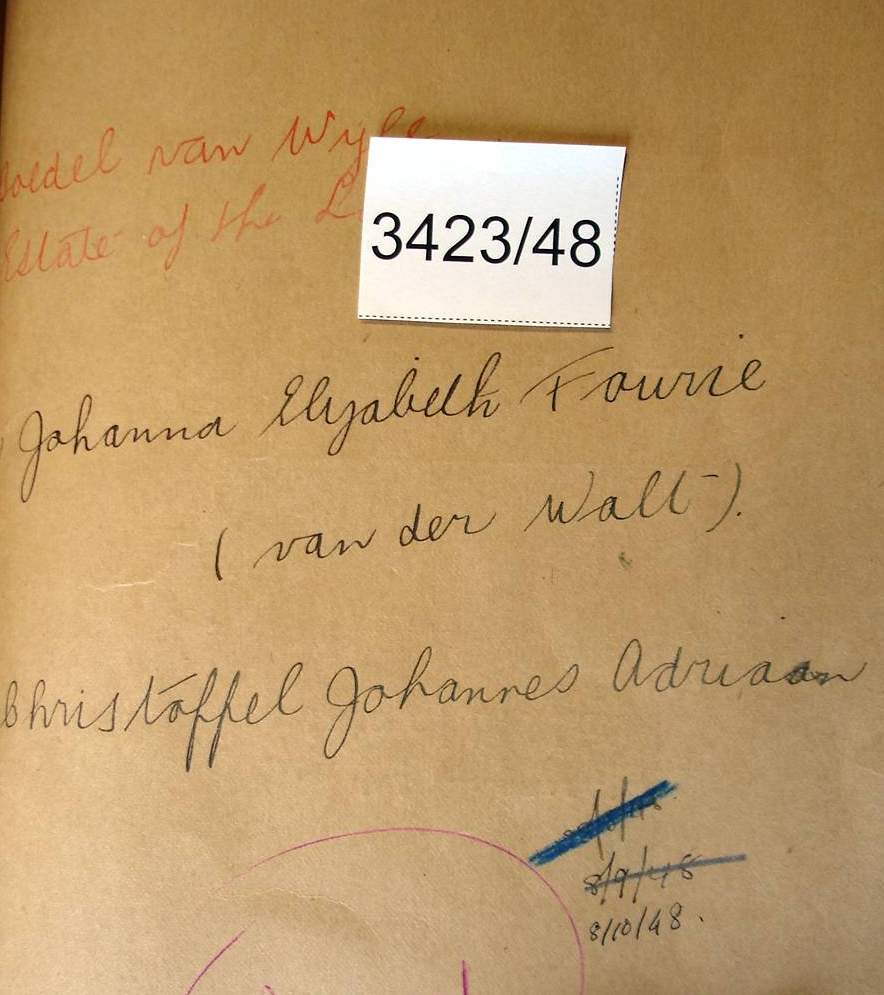 Boedel van Wyle
Estate of the L
3423/48
Johanna Elizabeth Fourie
(van der Walt).
Christoffel Johannes Adriaan
8/9/48
8/10/48.